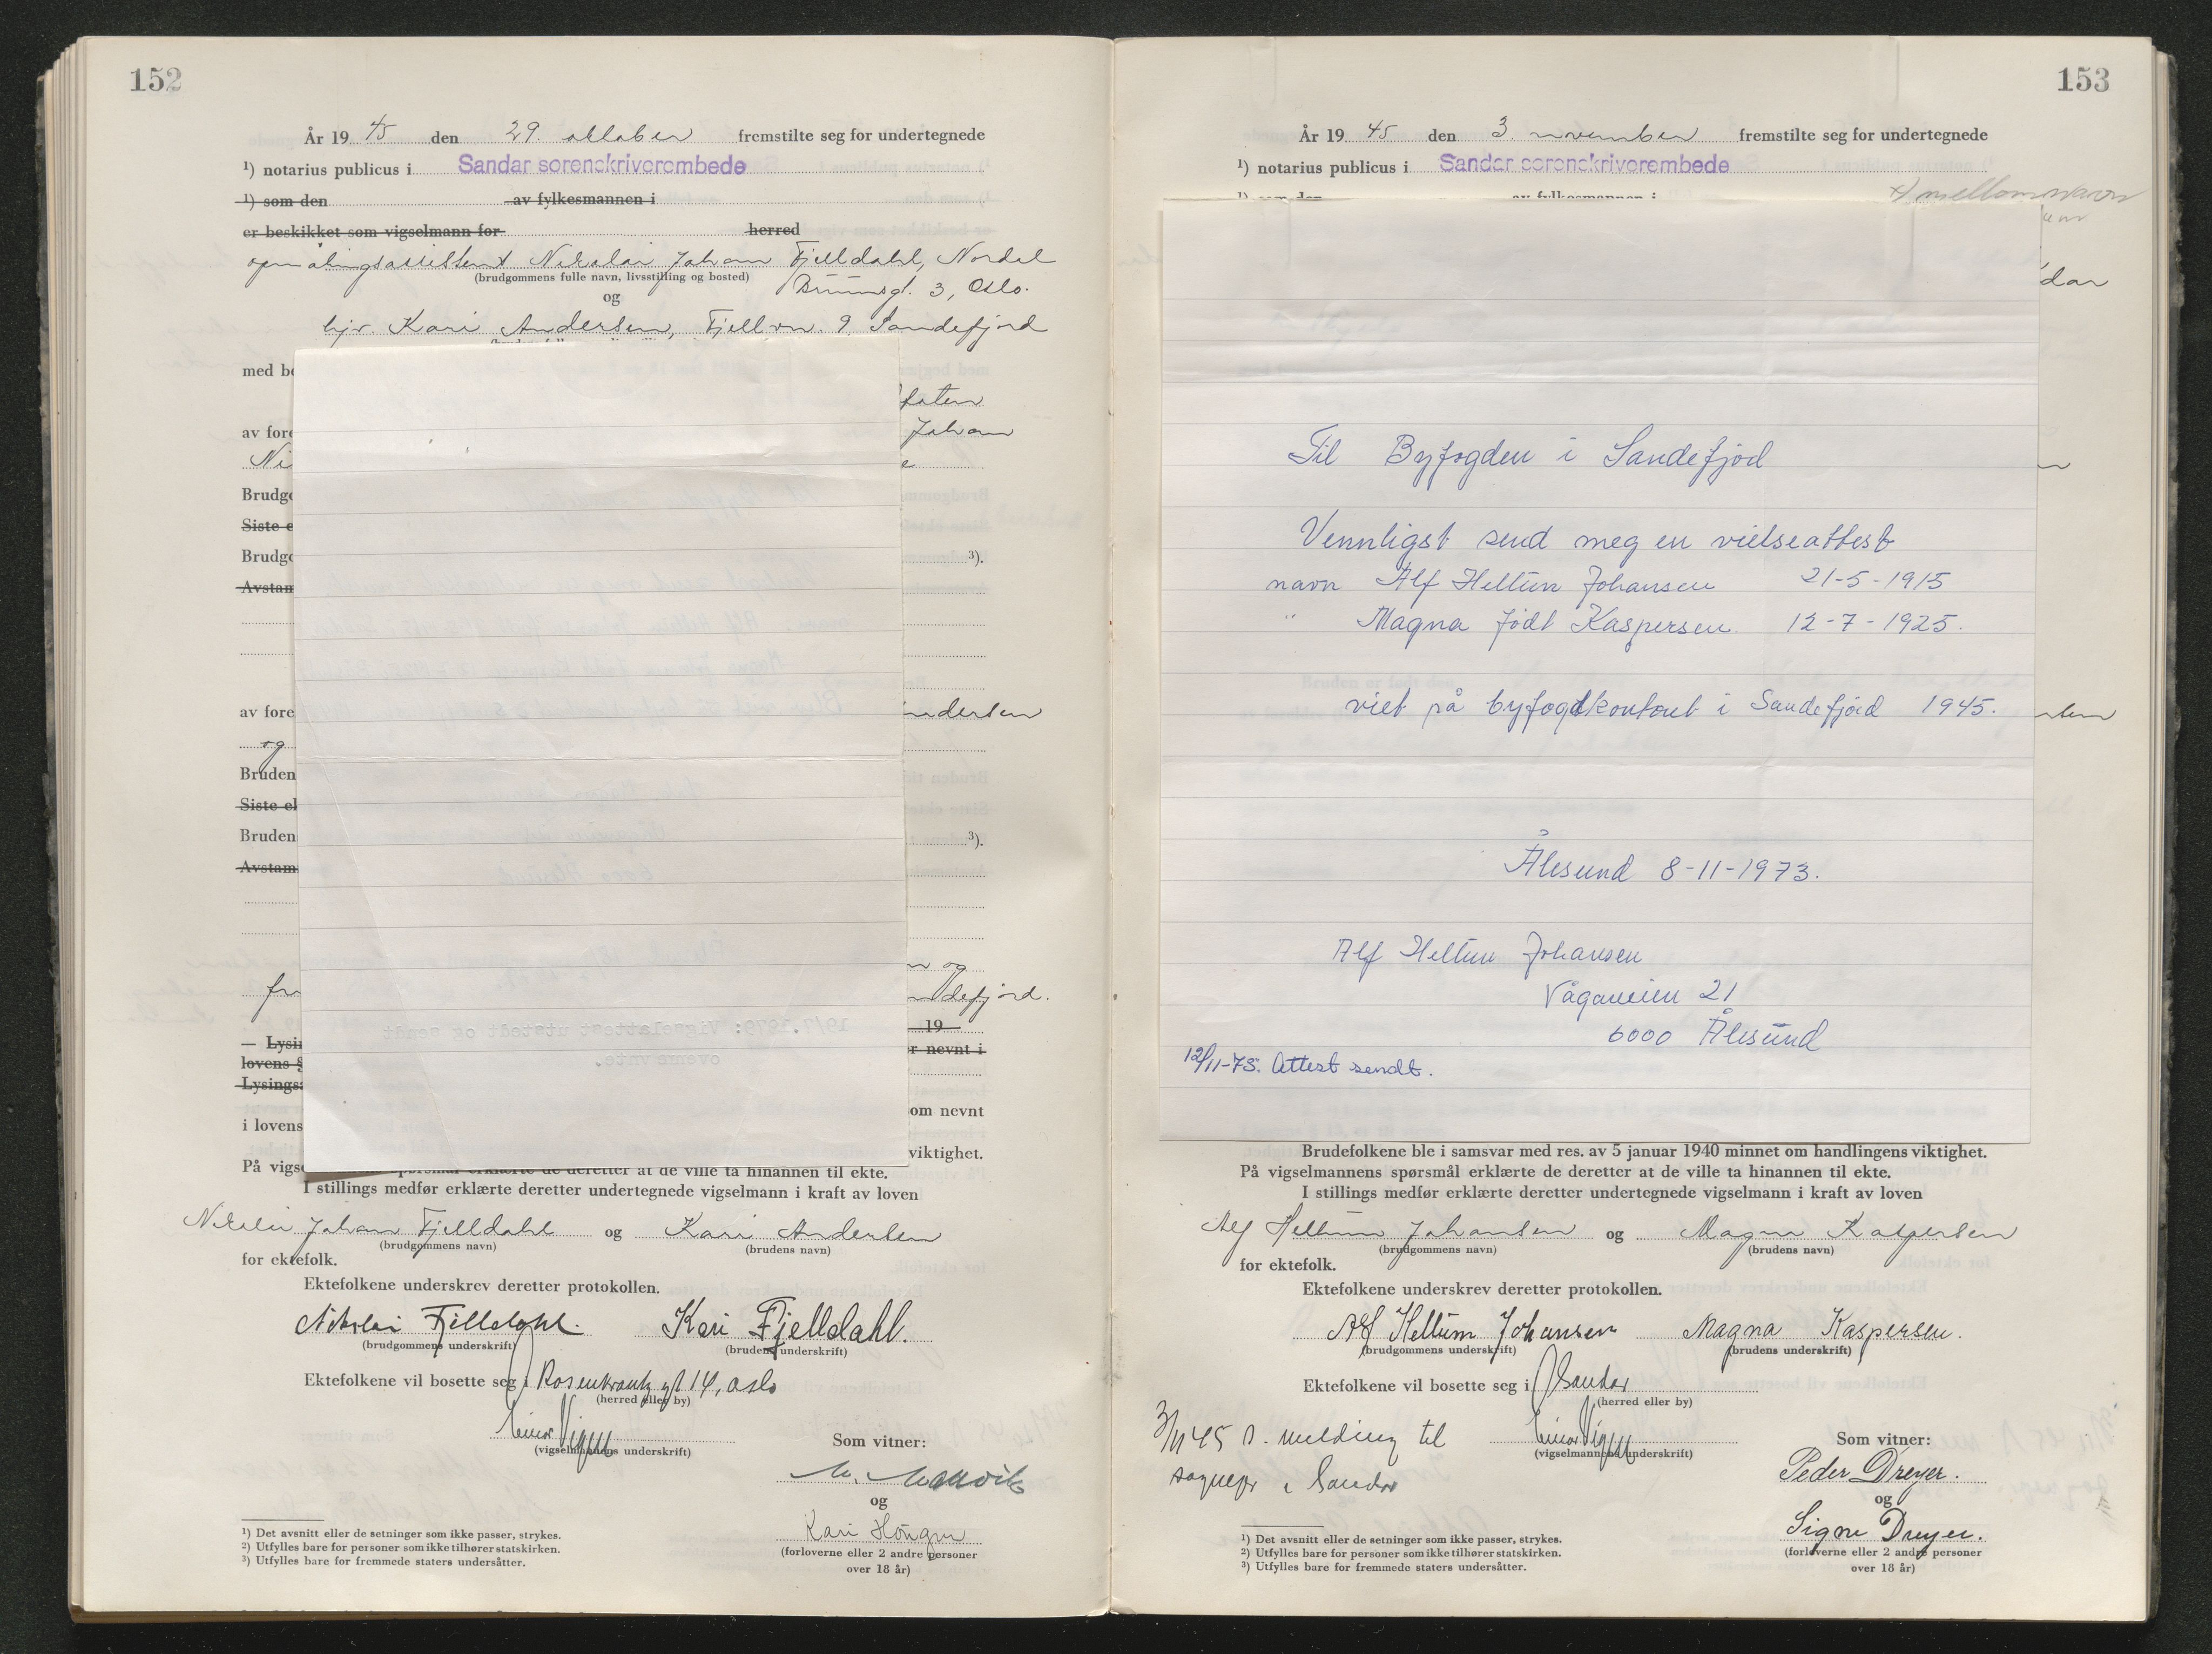 152
År 19 45 den 29. oktober fremstilte seg for undertegnede
¹) notarius publicus i Sandar sorenskriverembede
¹) som den av fylkesmannen i
er beskikket som vigselmann for herred
opmålingsassistent Nikolai Johan Fjelldahl, Nordal
(brudgommens fulle navn, livsstilling og bosted) Brunsgt. 3, Oslo.
og
hjv. Kari Andersen, Fjellvn. 9, Sandefjord
med be
av fore Johan
Ni e
Brudgo
Siste e
Brudgo ³).
Avstam
av fore ndersen
og
Bruden
Siste el
Bruden ³).
Avstam
og
fr defjord.
19
— Lysi r nevnt i
lovens §
Lysings
om nevnt
i lovens
viktighet.
På vigse spørsmål erklærte de deretter at de ville ta hinannen til ekte.
I stillings medfør erklærte deretter undertegnede vigselmann i kraft av loven
Nikolai Johan Fjelldahl og Kari Andersen
(brudgommens navn) (brudens navn)
for ektefolk.
Ektefolkene underskrev deretter protokollen.
Nikolai Fjelldahl. Kari Fjelldahl.
(brudgommens underskrift) (brudens underskrift)
Ektefolkene vil bosette seg i Rosenkrantz gt 14, Oslo
(herred eller by)
(vigselmannens underskrift)
Som vitner:
og
Kari
(forloverne eller 2 andre personer
over 18 år)
¹) Det avsnitt eller de setninger som ikke passer, strykes.
²) Utfylles bare for personer som ikke tilhører statskirken.
³) Utfylles bare for fremmede staters undersåtter.
153
År 19 45 den 3. november fremstilte seg for undertegnede
¹) notarius publicus i Sandar sorenskriverembede
¹) som den av fylkesmannen i
x) mellomnavn
dar
Til Byfogden i Sandefjod
Vennligst send meg en vielseattest
navn Alf Heltun Johansen 21-5-1915
" Magna født Kaspersen. 12-7-1925.
viet på byfogdkontoret i Sandefjord 1945.
Ålesund 8-11-1973.
Alf Heltun Johansen
Vågaveien 21
6000 Ålesund
12/11-73. Attest sendt.
Brudefolkene ble i samsvar med res. av 5 januar 1940 minnet om handlingens viktighet.
På vigselmannens spørsmål erklærte de deretter at de ville ta hinannen til ekte.
I stillings medfør erklærte deretter undertegnede vigselmann i kraft av loven
Alf Heltun Johansen og Magna Kaspersen
(brudgommens navn) (brudens navn)
for ektefolk.
Ektefolkene underskrev deretter protokollen.
Alf Heltum Johansen Magna Kaspersen.
(brudgommens underskrift) (brudens underskrift)
Ektefolkene vil bosette seg i Sandar
(herred eller by)
3/11 45 s. melding til
sognepr i Sandar
(vigselmannens underskrift)
Som vitner:
Peder Dreyer.
og
Signe Dreyer.
(forloverne eller 2 andre personer
over 18 år)
¹) Det avsnitt eller de setninger som ikke passer, strykes.
²) Utfylles bare for personer som ikke tilhører statskirken.
³) Utfylles bare for fremmede staters undersåtter.